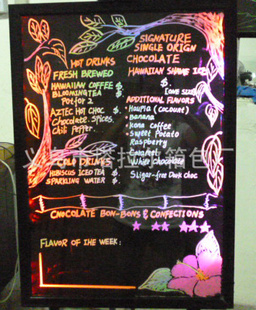 HOT DRINKS
FRESH BREWED
HAWAIIAN COFFEE $
BLOOMING TEA $
Pot for 2
AZTEC HOT CHOC $
Chocolate, Spices,
Chili Pepper.
COLD DRINKS
HIBISCUS ICED TEA $
SPARKLING WATER $
SIGNATURE
SINGLE ORIGN
CHOCOLATE
HAWAIIAN SHAVE ICE
$ (ONE SIZE)
ADDITIONAL FLAVORS
• Haupia (COCONUT)
• banana
• kona coffee
• Sweet Potato
Raspberry
• Caramel
• White chocolate
Sugar-free Dark choc
CHOCOLATE BON-BONS & CONFECTIONS
FLAVOR OF THE WEEK: